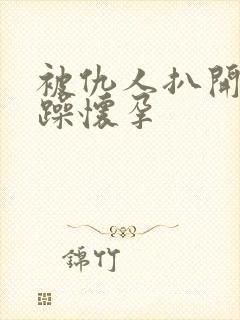 被仇人扒開
躁懷孕
錦竹